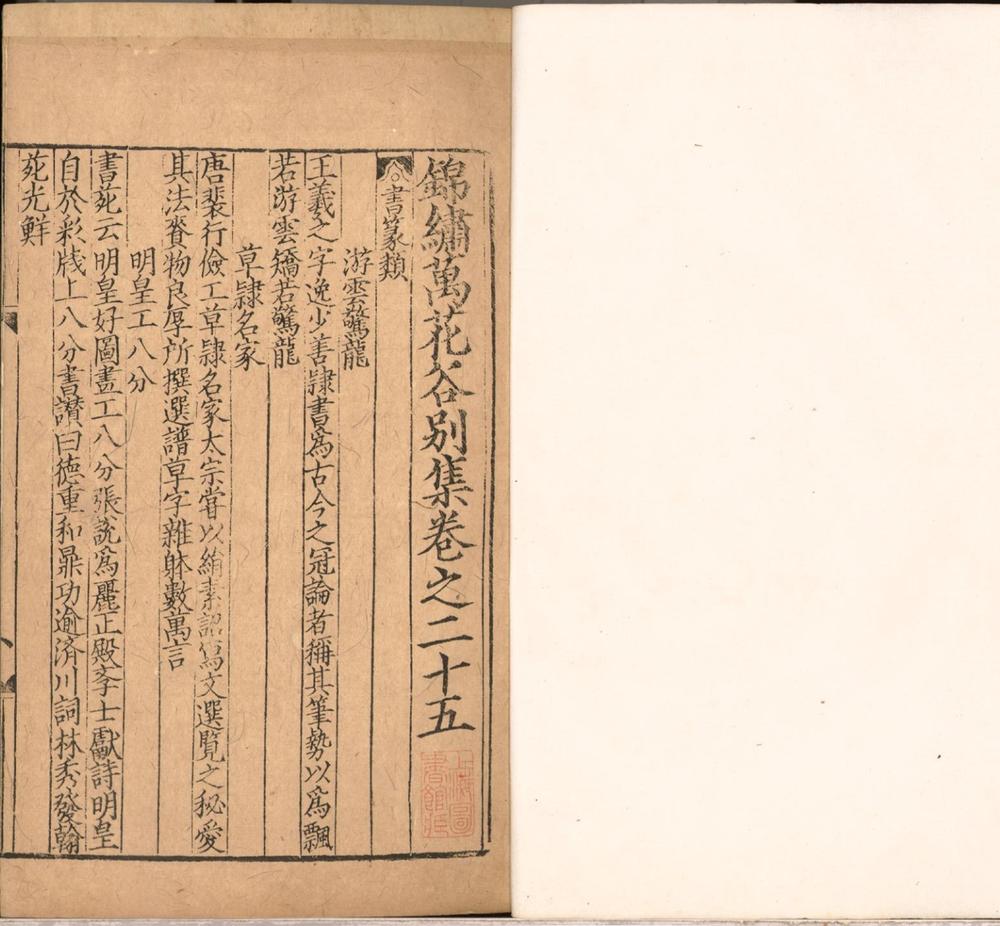 錦繡萬花谷別集卷之二十五
書篆類
游雲驚龍
王羲之字逸少善隷書爲古今之冠論者稱其筆勢以爲飄
若游雲矯若驚龍
草隷名家
唐裴行儉工草隷名家太宗甞以絹素詔寫文選覽之秘愛
其法賚物良厚所撰選譜草字雜躰數萬言
明皇工八分
書苑云明皇好圖畫工八分張說爲麗正殿斈士獻詩明皇
自於彩牋上八分書讃曰德重和鼎功逾済川詞林秀發翰
苑光鮮
上海圖
書館藏